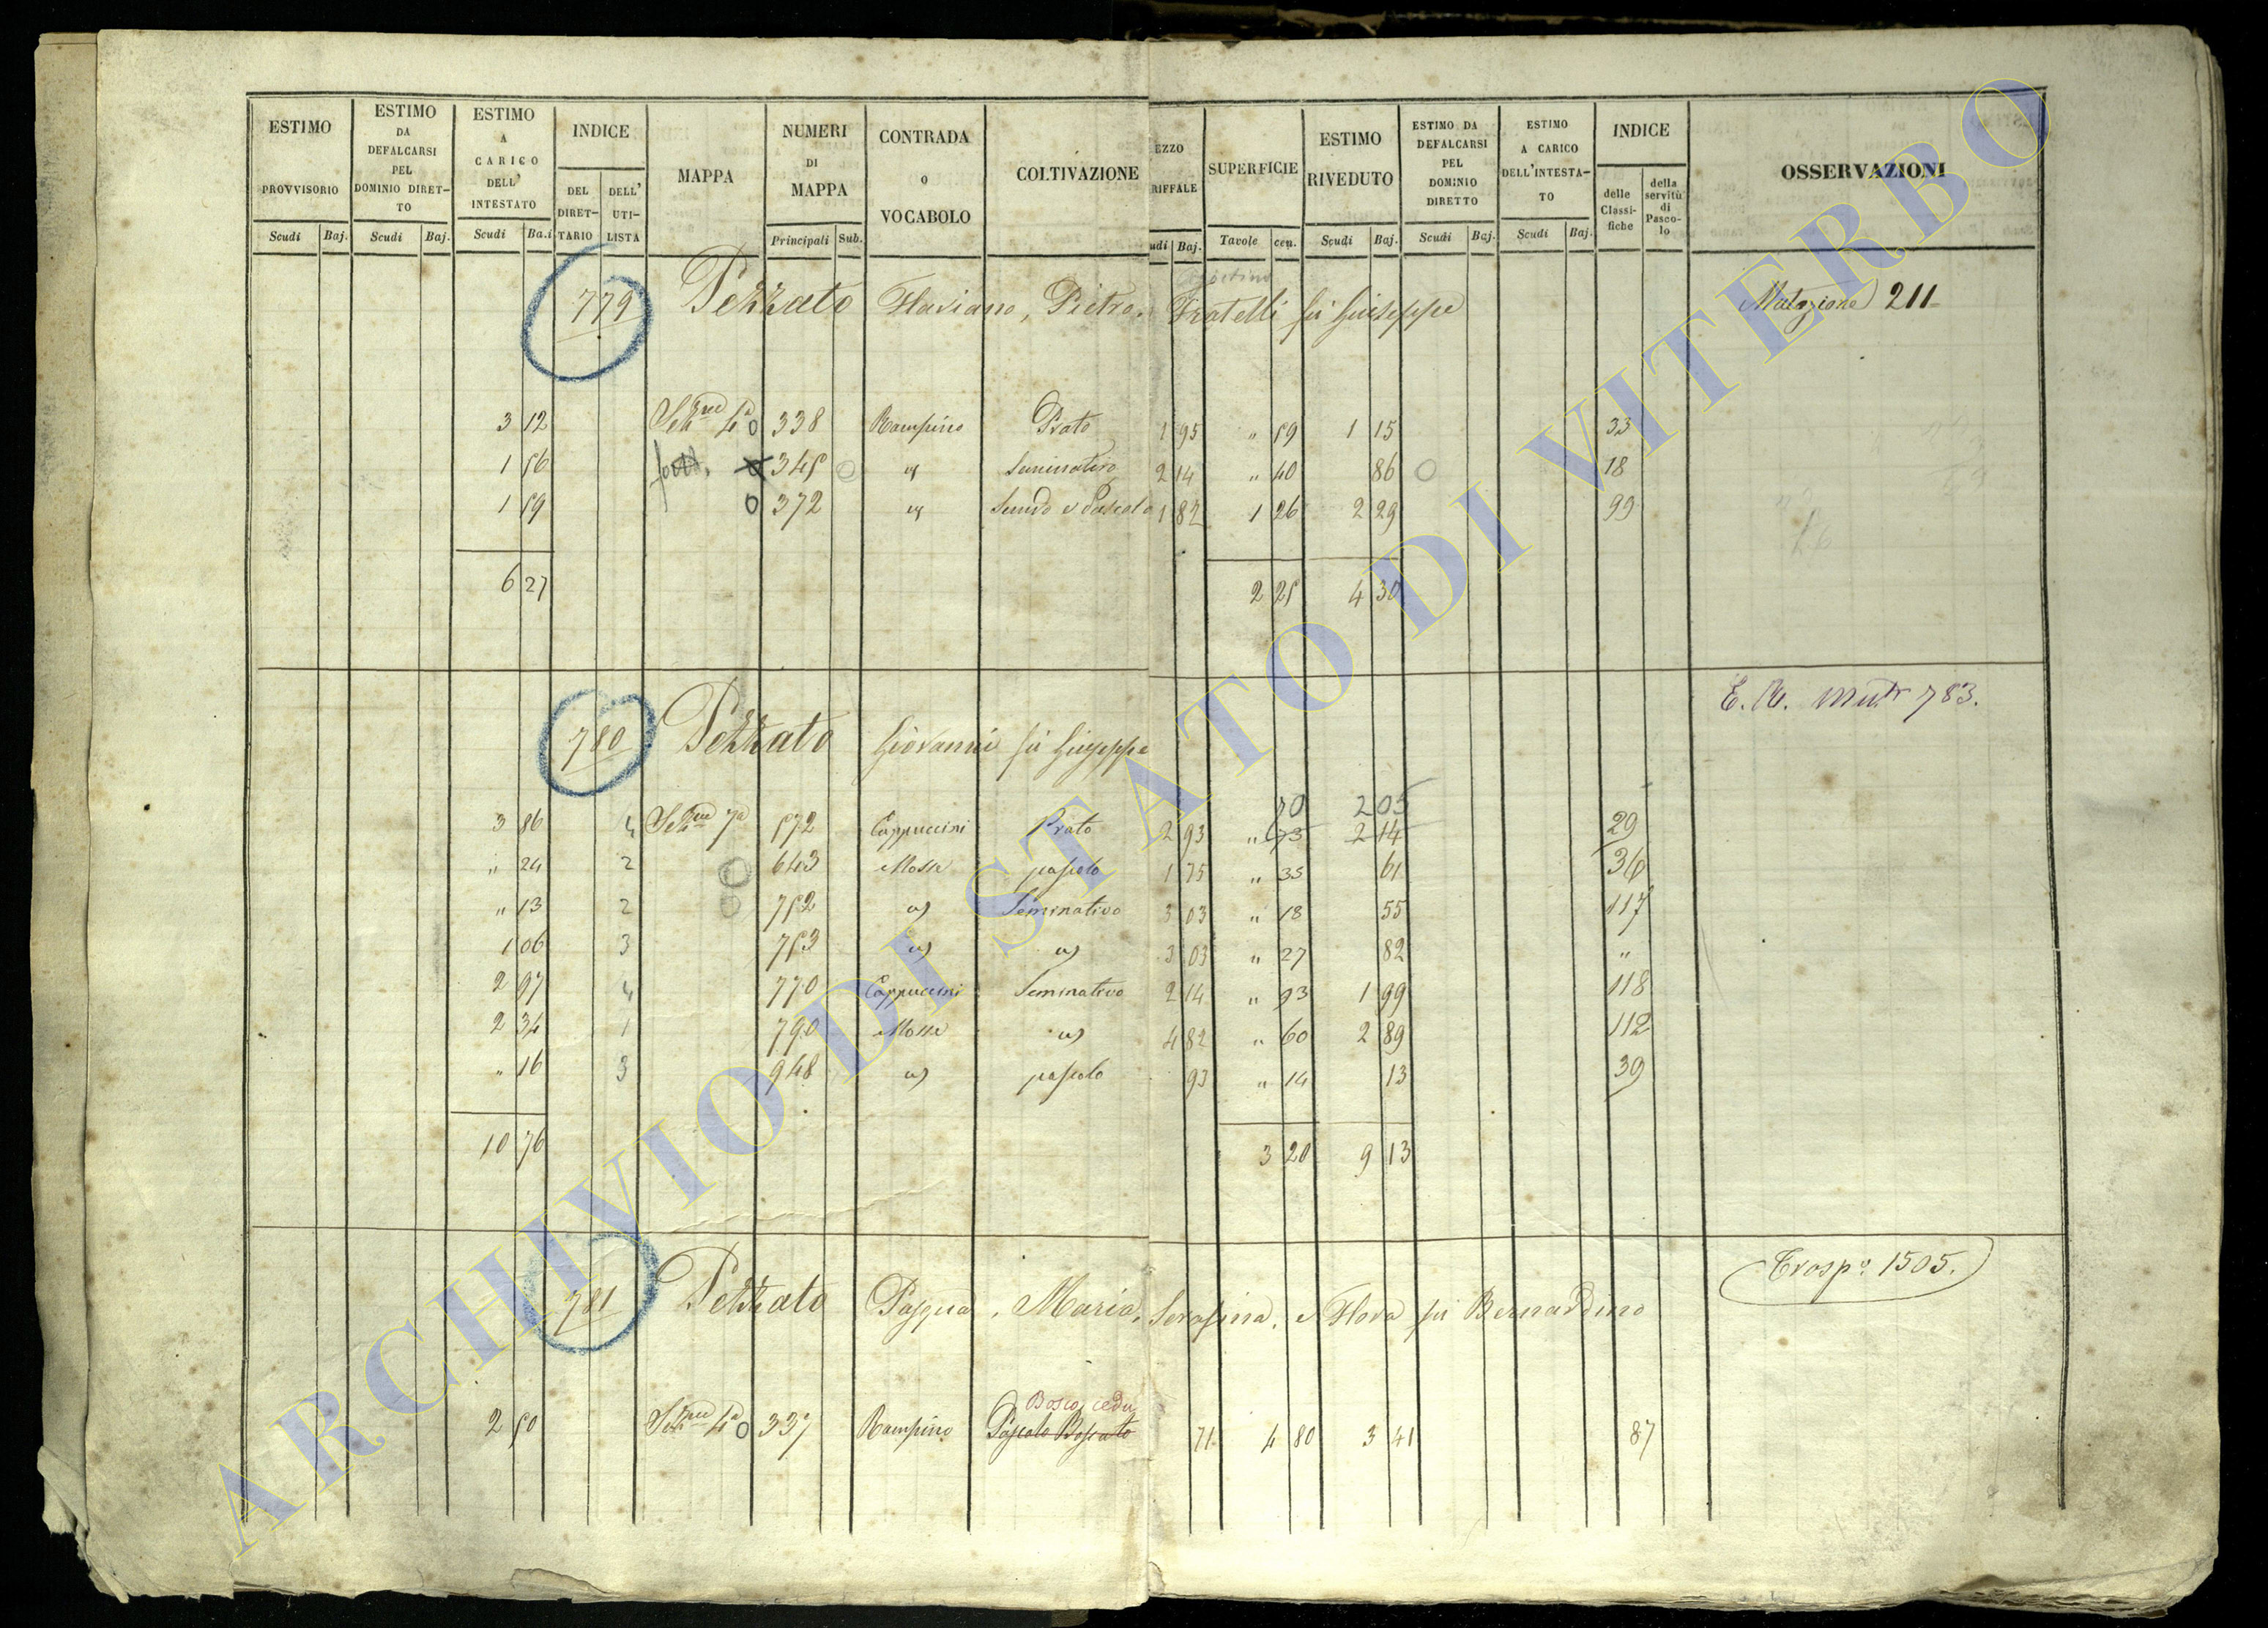 ESTIMO PROVVISORIO
ESTIMO DA DEFALCARSI PEL DOMINIO DIRET-TO
ESTIMO A CARICO DELL' INTESTATO
INDICE
DEL DIRET-TARIO
DELL' UTI-LISTA
MAPPA
NUMERI DI MAPPA
CONTRADA O VOCABOLO
COLTIVAZIONE
EZZO RIFFALE
SUPERFICIE
ESTIMO RIVEDUTO
ESTIMO DA DEFALCARSI PEL DOMINIO DIRETTO
ESTIMO A CARICO DELL'INTESTA-TO
INDICE
delle Classi-fiche
della servitù di Pasco-lo
OSSERVAZIONI
Scudi Baj. Scudi Baj. Scudi Ba.i Principali Sub. udi Baj. Tavole cen. Scudi Baj. Scudi Baj. Scudi Baj.
779 Pezzato Flaviano, Pietro, Fratelli fu Giuseppe Mutazione 211
3 12 Sezne 4a 0 338 Rampino Prato 1 95 " 59 1 15 33
1 56 345 " Seminativo 2 14 " 40 86 18
1 59 0 372 " Sundo e Pascolo 1 82 1 26 2 29 99
6 27 2 25 4 30
E. U. mutr 783.
780 Pezzato Giovanni fu Giuseppe
70 2 05
3 86 4 Sezne 7a 572 Cappuccini Prato 2 93 " 73 2 14 29
" 24 2 643 Mosse pascolo 1 75 " 35 61 36
" 13 2 752 " Seminativo 3 03 " 18 55 117
1 06 3 753 " " 3 03 " 27 82 "
2 97 4 770 Cappuccini Seminativo 2 14 " 93 1 99 118
2 34 1 790 Mosse " 4 82 " 60 2 89 112
" 16 3 948 " pascolo 93 " 14 13 39
10 76 3 20 9 13
Trasp.o 1505.
781 Pezzato Pasqua, Maria, Serafina, e Flora fu Bernardino
Bosco cedu
2 50 Sezne 4a 0 337 Rampino Pascolo Boscato 71 4 80 3 41 87
ARCHIVIO DI STATO DI VITERBO